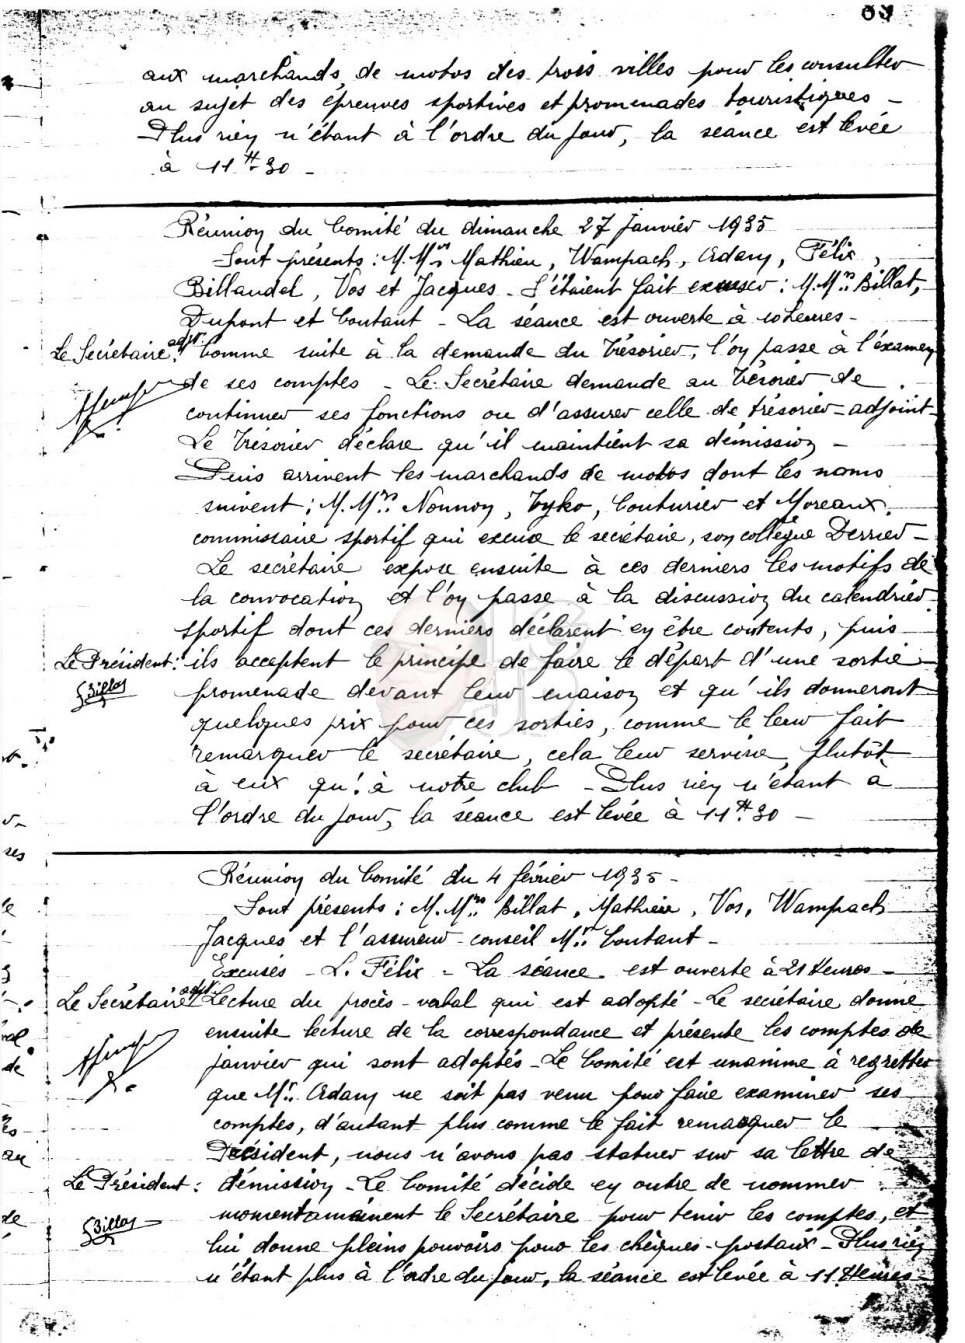 63
aux marchands de motos des trois villes pour les consulter
au sujet des épreuves sportives et promenades touristiques -
Plus rien n'étant à l'ordre du jour, la séance est levée
à 11 H 30 -
Réunion du Comité du dimanche 27 Janvier 1935
Sont présents : M.Mrs Mathieu, Wampach, Adam, Félix,
Billaudel, Vos et Jacques - S'étaient fait excuser : M.Mrs Billat,
Dupont et Coutant - La séance est ouverte à 10 heures -
Le Secrétaire adjt. Comme suite à la demande du Trésorier, l'on passe à l'examen
de ses comptes - Le Secrétaire demande au Trésorier de
continuer ses fonctions ou d'assurer celle de trésorier-adjoint -
Le Trésorier déclare qu'il maintient sa démission -
Puis arrivent les marchands de motos dont les noms
suivent : M.Mrs Nonnon, Tyko, Couturier et Moreaux,
commissaire sportif qui excuse le secrétaire, son collègue Derrier -
Le secrétaire expose ensuite à ces derniers les motifs de
la convocation et l'on passe à la discussion du calendrier
sportif dont ces derniers déclarent en être contents, puis
Le Président : ils acceptent le principe de faire le départ d'une sortie
Billat promenade devant leur maison et qu'ils donneront
quelques prix pour ces sorties, comme le leur fait
remarquer le secrétaire, cela leur servira, plutôt
à eux qu'à notre club - Plus rien n'étant à
l'ordre du jour, la séance est levée à 11 H. 30 -
Réunion du Comité du 4 février 1935 -
Sont présents : M.Mrs Billat, Mathieu, Vos, Wampach
Jacques et l'assureur-conseil Mr. Coutant -
Excusés - L. Félix - La séance est ouverte à 21 Heures -
Le Secrétaire adjt. Lecture du procès-verbal qui est adopté - Le secrétaire donne
ensuite lecture de la correspondance et présente les comptes de
janvier qui sont adoptés - Le Comité est unanime à regretter
que Mr. Adam ne soit pas venu pour faire examiner ses
comptes, d'autant plus comme le fait remarquer le
Président, nous n'avons pas statuer sur sa lettre de
Le Président : démission - Le Comité décide en outre de nommer
Billat momentanément le Secrétaire pour tenir les comptes, et
lui donne pleins pouvoirs pour les chèques-postaux - Plus rien
n'étant plus à l'ordre du jour, la séance est levée à 11 Heures -